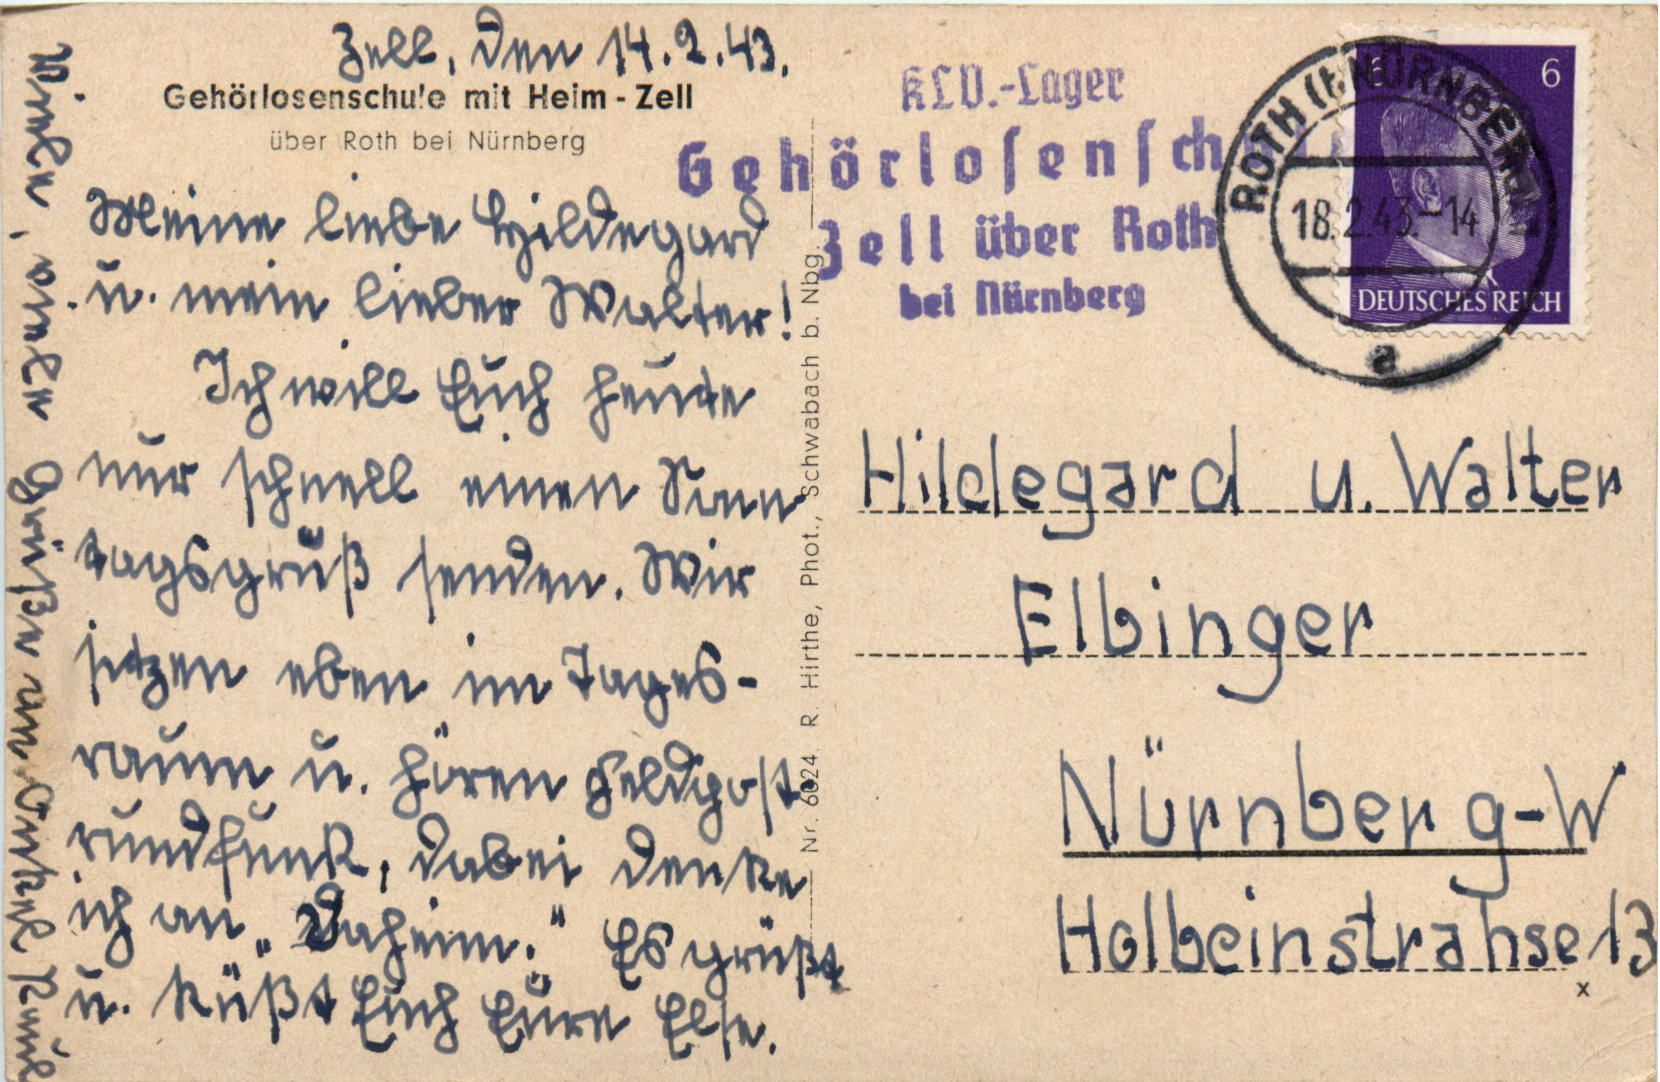 Zell, den 14.2.43.
Gehörlosenschule mit Heim - Zell
über Roth bei Nürnberg
Meine liebe Hildegard
u. mein lieber Walter!
Ich will Euch heute
nur schnell einen Sonn
tagsgruß senden. Wir
sitzen eben im Tages-
raum u. hören Feldpost
rundfunk, dabei denke
ich an „Daheim." Es grüßt
u. küßt Euch Eure Else.
Vielen, vielen Grüße an Onkel
Nr. 6024 R. Hirthe, Phot., Schwabach b. Nbg.
KLV.-Lager
Gehörlosensch
Zell über Roth
bei Nürnberg
ROTH (b. NÜRNBERG)
18.2.43.-14
a
6 6
DEUTSCHES REICH
Hildegard u. Walter
Elbinger
Nürnberg-W
Holbeinstrahse 13
x